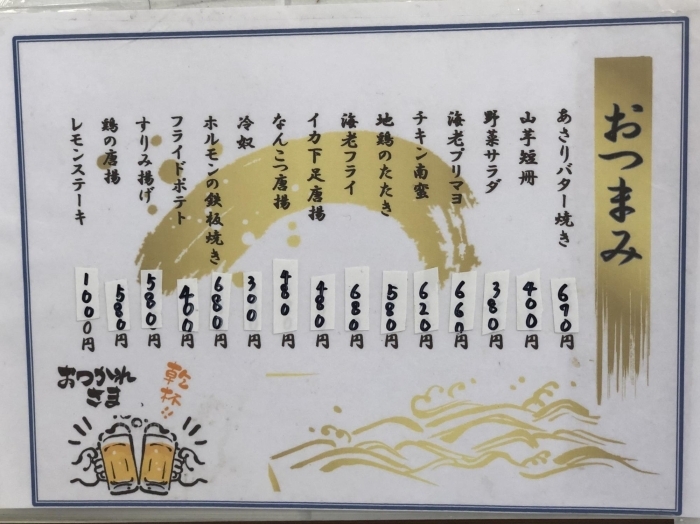 おつまみ
あさりバター焼き 670円
山芋短冊 400円
野菜サラダ 380円
海老プリマヨ 660円
チキン南蛮 620円
地鶏のたたき 580円
海老フライ 680円
イカ下足唐揚 480円
なんこつ唐揚 480円
冷奴 300円
ホルモンの鉄板焼き 680円
フライドポテト 400円
すりみ揚げ 580円
鶏の唐揚 580円
レモンステーキ 1000円
おつかれ
さま
乾
杯!!